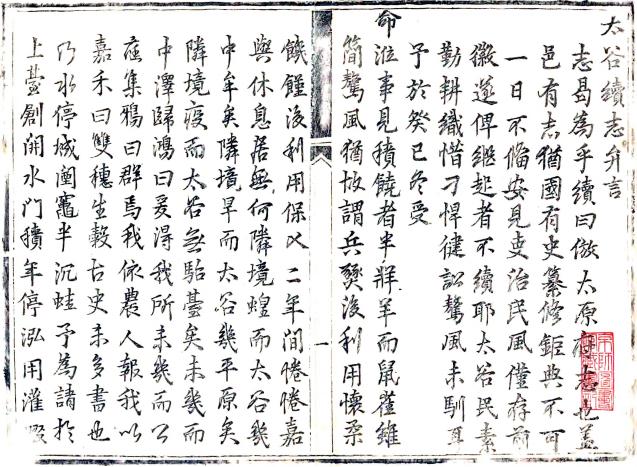 太谷續志弁言
志曷為乎續曰倣太原府志也蓋
邑有志猶國有史纂修鉅典不可
一日不備安見吏治民風僅存前
徽遂俾繼起者不續耶太谷民素
勤耕織惜刁悍健訟驁風未馴耳
予於癸巳冬受
命涖事見積饒者半牂羊而鼠雀維
簡驁風猶故謂兵燹後利用懷柔
一
饑饉後利用保乂二年間惓惓嘉
與休息居無何隣境蝗而太谷幾
中牟矣隣境旱而太谷幾平原矣
隣境疫而太谷無駘臺矣未幾而
中澤歸鴻曰爰得我所未幾而公
庭集鴉曰群焉我依農人報我以
嘉禾曰雙穗生穀古史未多書也
乃水停城闉竈半沉蛙予為請於
上臺創開水門積年停泓用灌